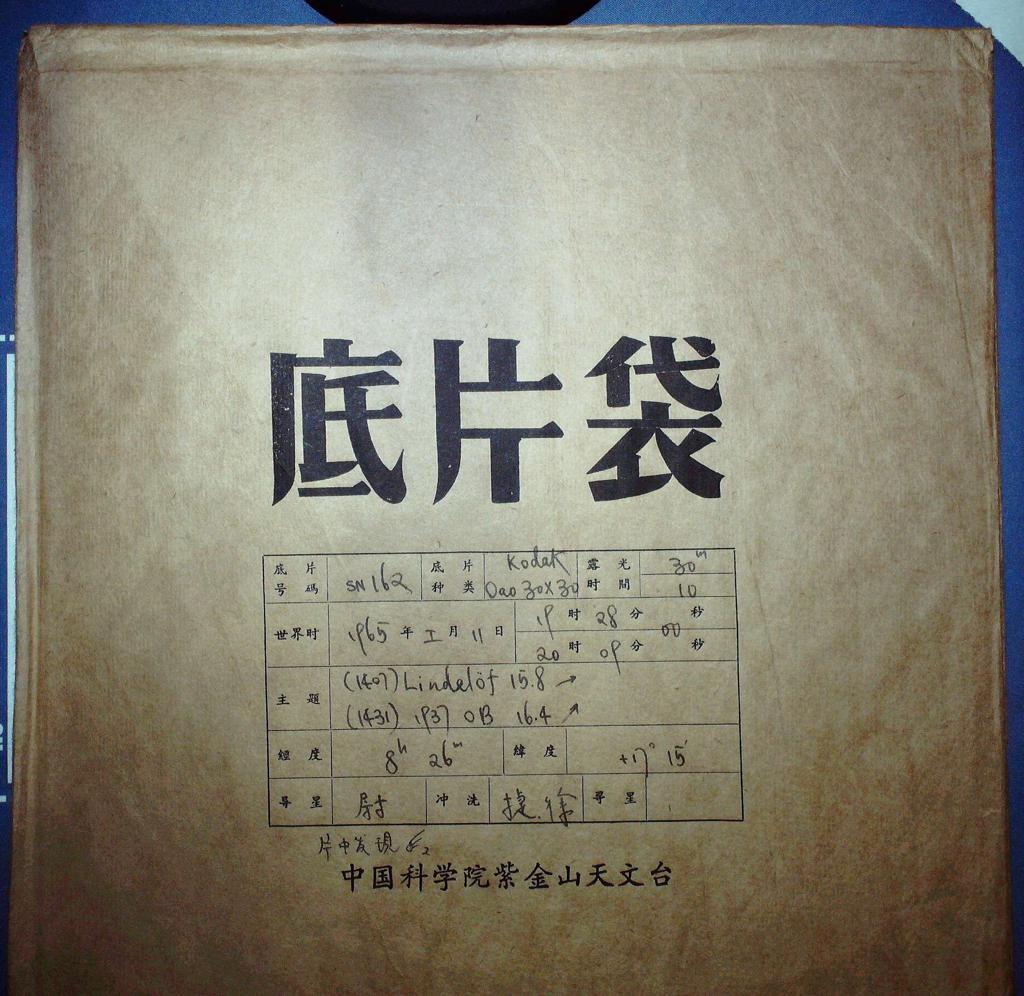 底片袋
底片号碼 SN 162 底片种类 Kodak Oao 30×30 露光时間 30ᵐ 10
世界时 1965 年 I 月 11 日 19 时 28 分 00 秒
20 时 09 分 秒
主題 (1407) Lindelöf 15.8 →
(1431) 1937 OB 16.4 ↗
經度 8ʰ 26ᵐ 緯度 +17° 15′
导星 尉 冲洗 捷.徐 寻星
片中发現
中国科学院紫金山天文台